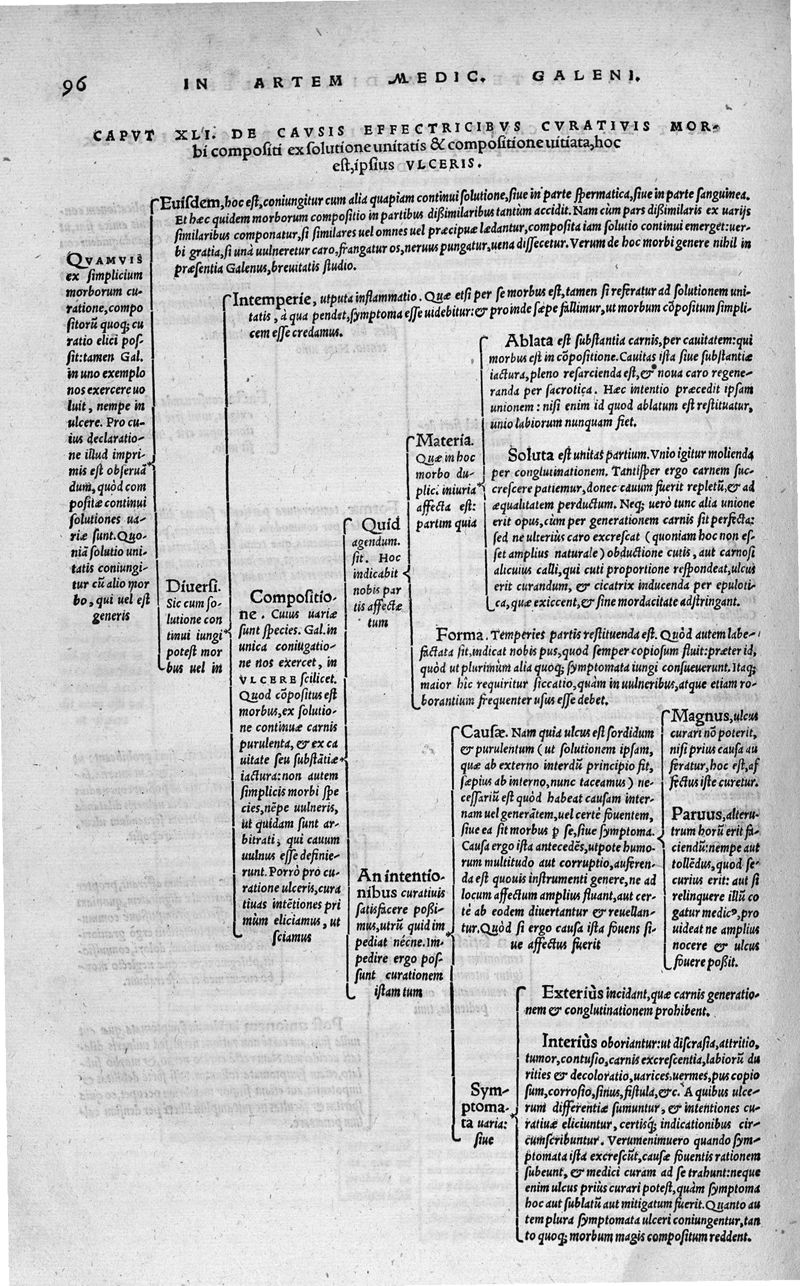 96 IN ARTEM MEDIC. GALENI.
CAPVT XLI. DE CAVSIS EFFECTRICIBVS CVRATIVIS MOR-
bi compositi ex solutione unitatis & compositione uitiata, hoc
est, ipsius VLCERIS.
QVAMVIS
ex simplicium
morborum cu-
ratione, compo
sitorũ quoq; cu
ratio elici pos-
sit: tamen Gal.
in uno exemplo
nos exercere uo
luit, nempe in
ulcere. Pro cu-
ius declaratio-
ne illud impri-
mis est obseruã
dum, quòd com
positæ continui
solutiones ua-
riæ sunt. Quo-
niã solutio uni-
tatis coniungi-
tur cũ alio mor
bo, qui uel est
generis
Eiusdem, hoc est, coniungitur cum alia quapiam continui solutione, siue in parte spermatica, siue in parte sanguinea.
Et hæc quidem morborum compositio in partibus dißimilaribus tantùm accidit. Nam cùm pars dißimilaris ex uarijs
similaribus componatur, si similares uel omnes uel præcipuæ lædantur, composita iam solutio continui emerget: uer-
bi gratia, si unà uulneretur caro, frangatur os, neruus pungatur, uena dissecetur. Verum de hoc morbi genere nihil in
præsentia Galenus, breuitatis studio.
Diuersi.
Sic cum so-
lutione con
tinui iungi
potest mor
bus uel in
Intemperie, utputa inflammatio. Quæ etsi per se morbus est, tamen si referatur ad solutionem uni-
tatis, à qua pendet, symptoma esse uidebitur: & proinde sæpe fallimur, ut morbum cõpositum simpli-
cem esse credamus.
Compositio-
ne. Cuius uariæ
sunt species. Gal. in
unica coniugatio-
ne nos exercet, in
VLCERE scilicet.
Quod cõpositus est
morbus, ex solutio-
ne continuæ carnis
purulenta, & ex ca
uitate seu substãtiæ
iactura: non autem
simplicis morbi spe
cies, nẽpe uulneris,
ut quidam sunt ar-
bitrati, qui cauum
uulnus esse definie-
runt. Porrò pro cu-
ratione ulceris, cura
tiuas intẽtiones pri
mùm eliciamus, ut
sciamus
Quid
agendum.
sit. Hoc
indicabit
nobis par
tis affectæ
tum
Materia.
Quæ in hoc
morbo du-
plici iniuria
affecta est:
partim quia
Ablata est substantia carnis, per cauitatem: qui
morbus est in cõpositione. Cauitas ista siue substantiæ
iactura, pleno resarcienda est, & noua caro regene-
randa per sacrotica. Hæc intentio præcedit ipsam
unionem: nisi enim id quod ablatum est restituatur,
unio labiorum nunquam fiet.
Soluta est unitas partium. Vnio igitur molienda
per conglutinationem. Tantisper ergo carnem suc-
crescere patiemur, donec cauum fuerit repletũ, & ad
æqualitatem perductum. Neq; uerò tunc alia unione
erit opus, cùm per generationem carnis sit perfecta:
sed ne ulterius caro excrescat (quoniam hoc non es-
set amplius naturale) obductione cutis, aut carnosi
alicuius calli, qui cuti proportione respondeat, ulcus
erit curandum, & cicatrix inducenda per epuloti-
ca, quæ exiccent, & sine mordacitate adstringant.
Forma. Temperies partis restituenda est. Quòd autem labe-
factata sit, indicat nobis pus, quod semper copiosum fluit: præter id,
quòd ut plurimùm alia quoq; symptomata iungi consueuerunt. Itaq;
maior hîc requiritur siccatio, quàm in uulneribus, atque etiam ro-
borantium frequenter usus esse debet.
An intentio-
nibus curatiuis
satisfacere poßi-
mus, utrũ quid im
pediat nécne. Im-
pedire ergo pos-
sunt curationem
istam tum
Causæ. Nam quia ulcus est sordidum
& purulentum (ut solutionem ipsam,
quæ ab externo interdũ principio fit,
sæpius ab interno, nunc taceamus) ne-
cessariũ est quòd habeat causam inter-
nam uel generãtem, uel certè fouentem,
siue ea sit morbus p se, siue symptoma.
Causa ergo ista antecedẽs, utpote humo-
rum multitudo aut corruptio, auferen-
da est quouis instrumenti genere, ne ad
locum affectum amplius fluant, aut cer-
tè ab eodem diuertantur & reuellan-
tur. Quòd si ergo causa ista fouens si-
ue affectus fuerit
Magnus, ulcus
curari nõ poterit,
nisi prius causa au
feratur, hoc est, af
fectus iste curetur.
Paruus, alteru-
trum horũ erit fa-
ciendũ: nempe aut
tollẽdus, quod se-
curius erit: aut si
relinquere illũ co
gatur medicꝰ, pro
uideat ne amplius
nocere & ulcus
fouere poßit.
Sym-
ptoma-
ta uaria:
siue
Exteriùs incidant, quæ carnis generatio-
nem & conglutinationem prohibent.
Interiùs oboriantur: ut discrasia, attritio,
tumor, contusio, carnis excrescentia, labiorũ du
rities & decoloratio, uarices, uermes, pus copio
sum, corrosio, sinus, fistula, &c. A quibus ulce-
rum differentiæ sumuntur, & intentiones cu-
ratiuæ eliciuntur, certisq; indicationibus cir-
cumscribuntur. Verumenimuero quando sym-
ptomata ista excrescũt, causæ fouentis rationem
subeunt, & medici curam ad se trahunt: neque
enim ulcus priùs curari potest, quàm symptoma
hoc aut sublatũ aut mitigatum fuerit. Quanto au
tem plura symptomata ulceri coniungentur, tan
to quoq; morbum magis compositum reddent.